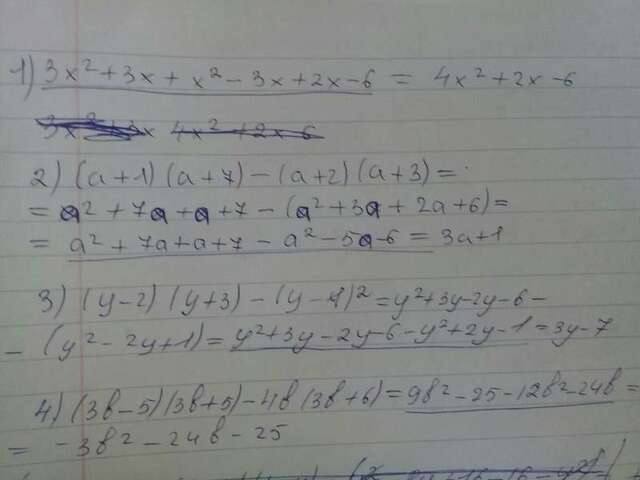 1) 3x² + 3x + x² - 3x + 2x - 6 = 4x² + 2x - 6
3x² + 3x 4x² + 2x - 6
2) (a + 1) (a + 7) - (a + 2) (a + 3) =
= a² + 7a + a + 7 - (a² + 3a + 2a + 6) =
= a² + 7a + a + 7 - a² - 5a - 6 = 3a + 1
3) (y - 2) (y + 3) - (y - 1)² = y² + 3y - 2y - 6 -
- (y² - 2y + 1) = y² + 3y - 2y - 6 - y² + 2y - 1 = 3y - 7
4) (3b - 5) (3b + 5) - 4b (3b + 6) = 9b² - 25 - 12b² - 24b =
= - 3b² - 24b - 25